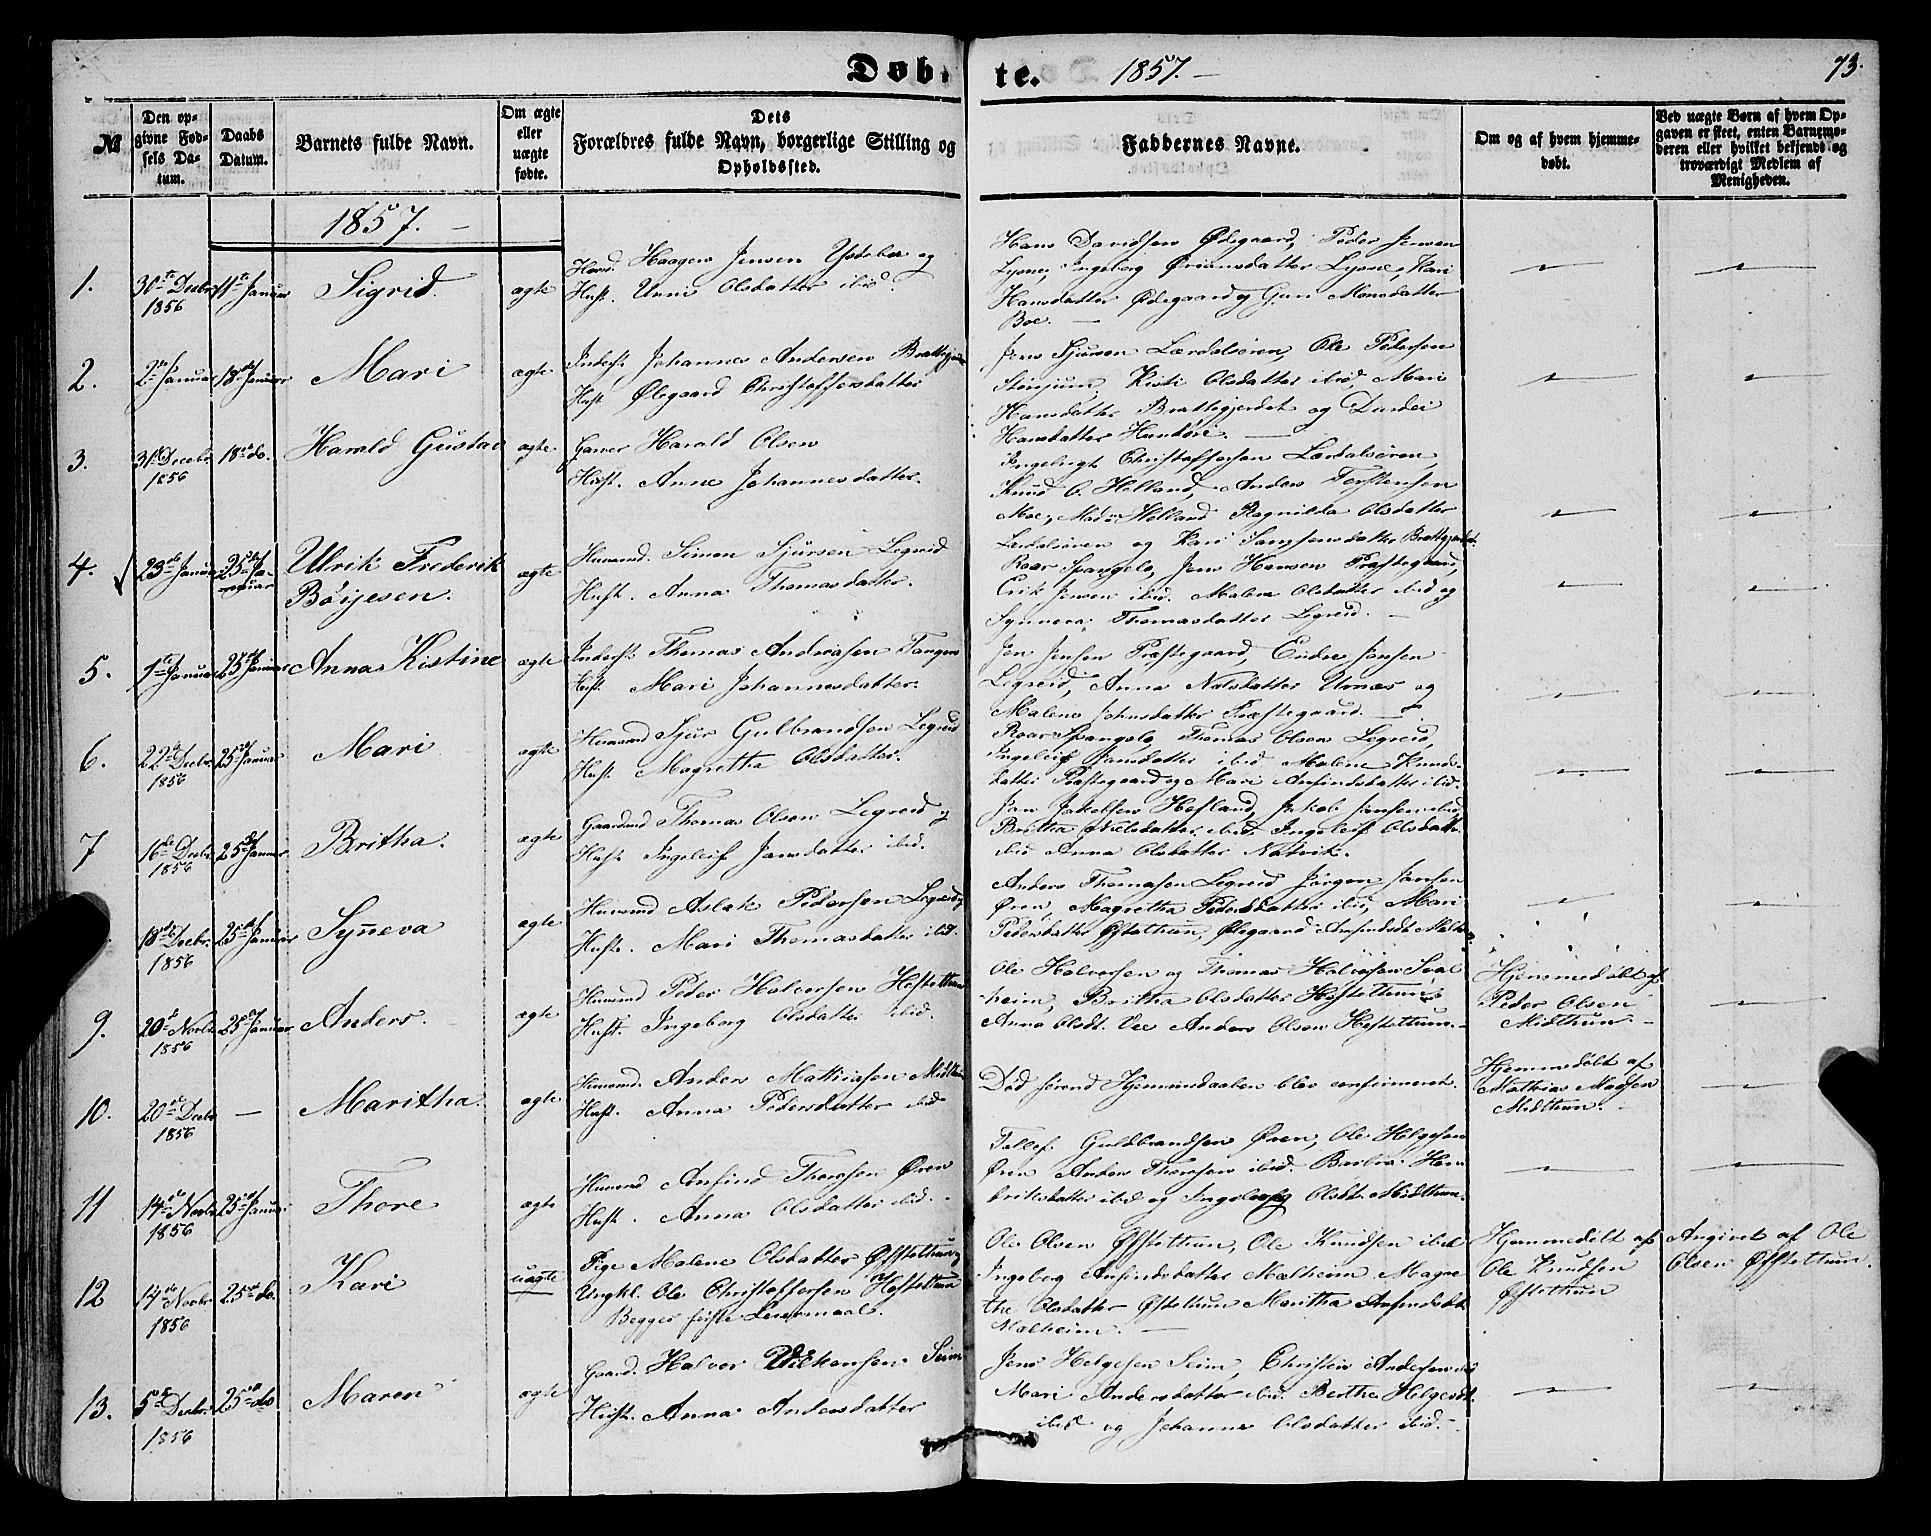 Døb.
te. 1857. —
73.
№
Den opgivne Fødsels Datum.
Daabs Datum.
Barnets fulde Navn.
Om ægte eller uægte fødte.
Dets Forældres fulde Navn, borgerlige Stilling og Opholdssted.
Faddernes Navne.
Om og af hvem hjemmedøbt.
Ved uægte Børn af hvem Opgaven er skeet, enten Barnemoderen eller hvilket bekjendt og troværdigt Medlem af Menigheden.
1857. —
1. 31te Decbr 1856 11te Januar Sigrid. ægte
Huusmd. Haagen Jensen Ysteboe og
Hust. Unni Olsdatter ibid.
Hans Davidsen Ødegaard, Peder Jensen
Lysne, Ingeborg Ørjansdatter Lysne, Kari
Hansdatter Ødegaard og Guri Monsdatter
Boe. —
2. 2den Januar 18de Januar Mari ægte
Inderst. Johannes Andersen Brattegjerdet
Hust. Ølegaard Christoffersdatter
Jens Sjursen Lærdalsøren, Ole Pedersen
Stønjum, Kirsti Olsdatter ibid, Mari
Hansdatter Brattegjerdet og Durdei
Hansdatter Hunderi. —
3. 31te Decbr. 1856 18de do. Harald Gustav ægte
Garver Harald Olsen
Hust. Anne Johannesdatter.
Ingebrigt Christoffersen Lærdalsøren,
Knud O. Helland, Anders Torstensen
Moe, Mad. Helland Ragnilda Olsdatter
Lærdalsøren og Kari Samsonsdatter Brattegjerdet.
4. 23de Januar 25de Januar Ulrik Frederik Börjesen. ægte
Huusmd. Simon Sjursen Legreid
Hust. Anna Thomasdatter.
Roar Spangelo, Jens Hansen Præstegaard,
Erik Jensen ibid. Malene Olsdatter ibid og
Synneva Thomasdatter Legreid. —
5. 1te Januar 25de Januar Anna Kistine ægte
Inderst. Thomas Andreasen Tangen
Hust. Mari Johannesdatter.
Jon Jensen Præstegaard, Endre Jensen
Legreid, Anna Nilsdatter Urnæs og
Malene Johnsdatter Præstegaard. —
6. 22de Decbr. 1856 25de Januar Mari ægte
Huusmd Sjur Gulbrandsen Legreid
Hust. Magretha Olsdatter.
Roar Spangelo, Thomas Olsen Legreid,
Ingeleif Jansdatter ibid Malene Knudsdatter
Præstegaard og Mari Anfindsdatter ibid.
7 16de Decbr. 1856 25de Januar Britha. ægte
Gaardmd Thomas Olsen Legreid og
Hust. Ingeleif Jansdatter ibid.
Jan Jakobsen Hofland, Jakob Jansen ibid,
Britha Nilsdatter ibid, Ingeleif Olsdatter
ibid Anna Olsdatter Natvik.
18de Decbr. 1856 25de Januar Synneva ægte
Huusmd Aslak Pedersen Legreid og
Hust. Mari Thomasdatter ibid.
Anders Thomasen Legreid Jørgen Jansen
Øren, Magretha Pedersdatter ibid, Mari
Pedersdatter Øfstethun, Ølegaard Anfindsdt.
9. 20de Novbr 1856 25de Januar Anders. ægte
Huusmd Peder Halvorsen Hofstethun
Hust. Ingeborg Olsdatter ibid.
Ole Halvorsen og Thomas Halvorsen Svalheim,
Britha Olsdatter Hofstethun,
Anna Olsdt. Vee Anders Olsen Hofstethun. —
Hjemmedöbt af
Peder Olsen
Midthun. —
10. 20de Decbr 1856 — Maritha. ægte
Huusmd. Anders Mathiasen Midthun
Hust. Anna Pedersdatter ibid
Död förend Hjemmedaaben blev confirmeret.
Hjemmedöbt af
Mathias Madsen
Midthun. —
11 14de Novbr 1856 25de Januar Thore ægte
Huusmd Anfind Thoresen Øren
Hust. Anna Olsdatter ibid.
Tollef Guldbrandsen Øren, Ole Helgesen
Øren Anders Thoresen ibid. Barbra Henriksdatter
ibid og Ingeborg Olsdt. Midthun.
12 14de Novbr 1856 25de do. Kari uægte
Pige Malene Olsdatter Øfstethun og
Ungkl. Ole Christoffersen Hofstethun
Begges förste Leiermaal.
Ole Olsen Øfstethun, Ole Knudsen ibid
Ingeborg Anfindsdatter Mælheim Magrethe
Olsdatter Øfstethun Maritha Anfindsdt.
Mælheim. —
Hjemmedöbt af
Ole Knudsen
Øfstethun
Angivet af Ole
Olsen Øfstethun.
13. 5te Decbr. 1856 25de do Maren ægte
Gaardmd. Halvor Wilkensen Seim
Hust. Anna Andersdatter
Jens Helgesen Seim, Christen Andersen ibid
Mari Andersdatter ibid. Berthe Helgesdt.
ibid og Johanne Olsdatter ibid. —